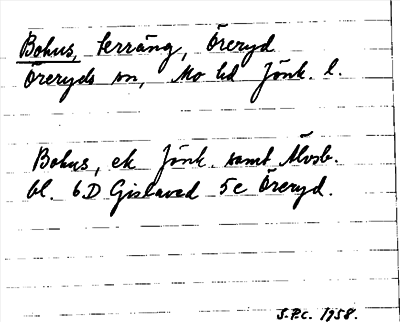 Bohus, terräng, Öreryd
Öreryds sn, Mo hd Jönk. l.
Bohus, ek Jönk. samt Älvsb.
bl. 6D Gislaved 5c Öreryd.
S.P.C. 1958.